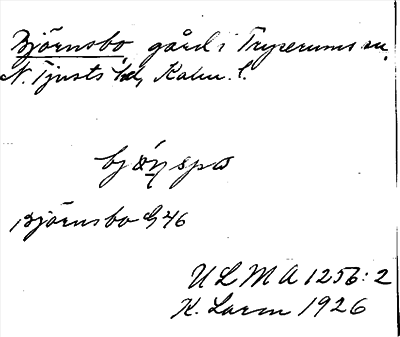 Björnsbo gård i Tryserums sn,
N. Tjusts hd, Kalm. l.
Björnsbo G 46
ULMA 1256:2
K. Larm 1926